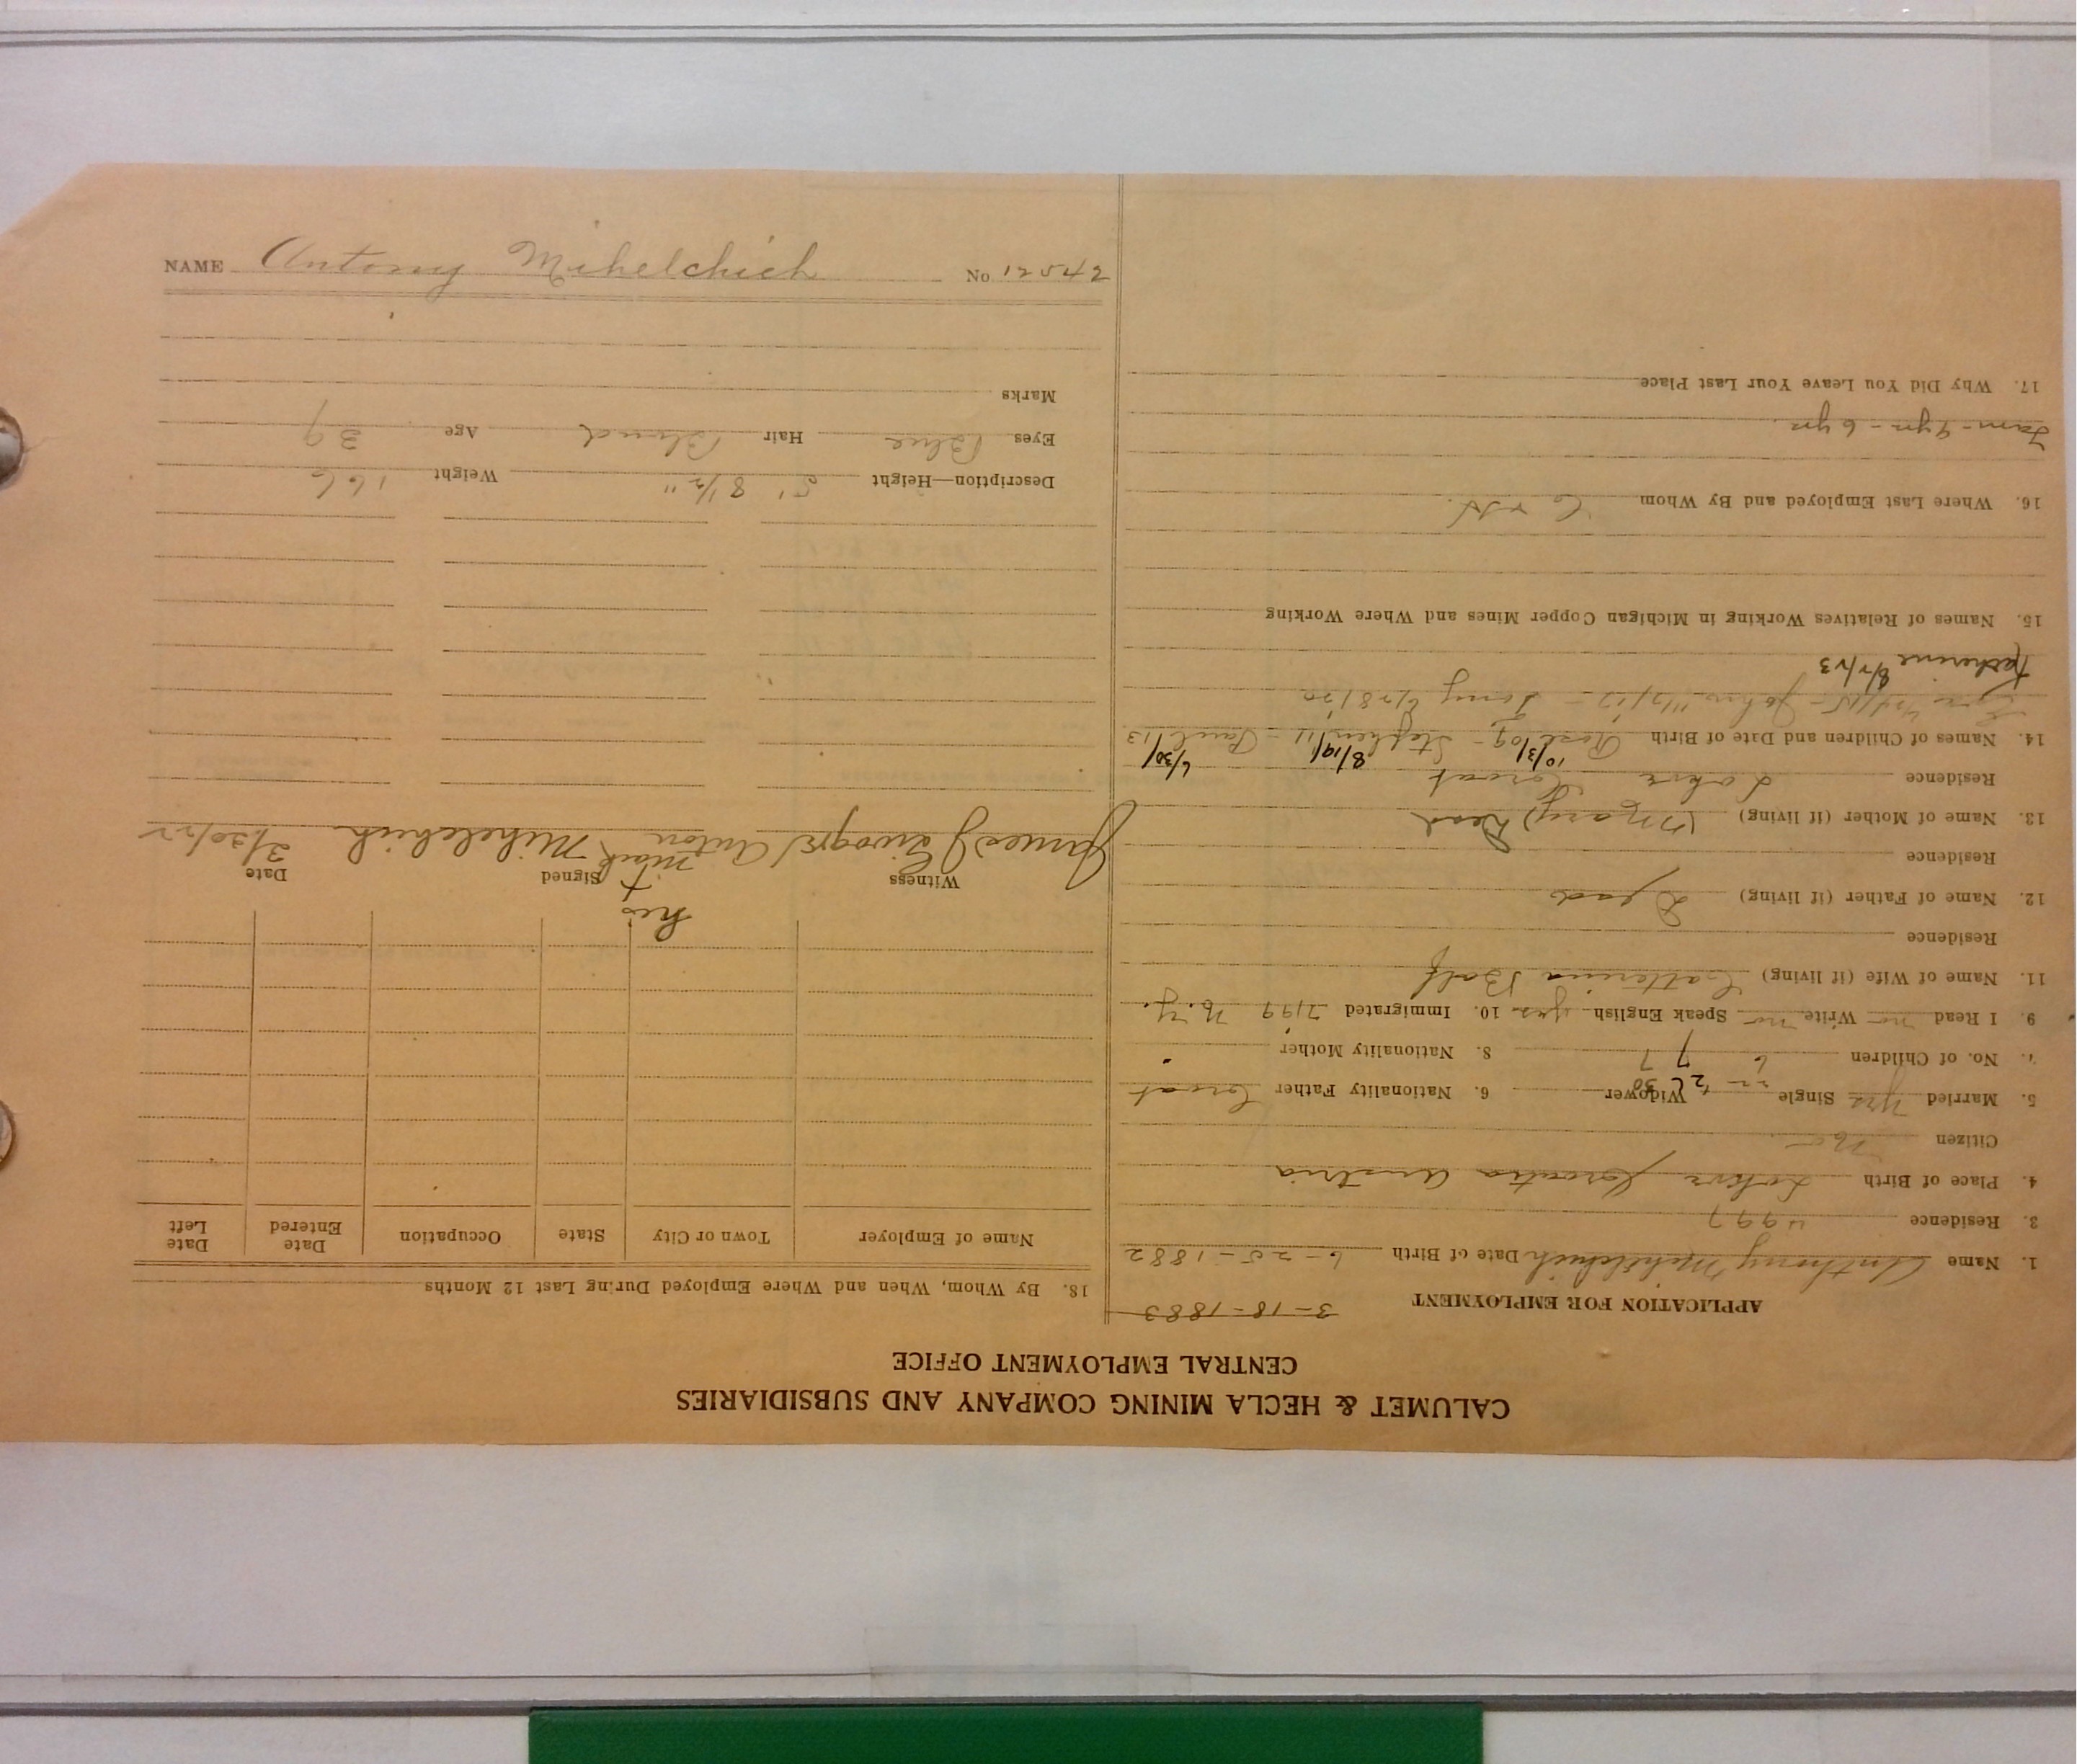 NAME Antony Mihelchich No 12542
CALUMET & HECLA MINING COMPANY AND SUBSIDIARIES
CENTRAL EMPLOYMENT OFFICE
APPLICATION FOR EMPLOYMENT 3-18-1883
1. Name Anthony Mihelchich Date of Birth 6-25-1882
3. Residence 4997
4. Place of Birth Lokve Croatia Austria
Citizen no
5. Married yes Single Widower 6. Nationality Father Croat
7. No. of Children 6 7 7 8. Nationality Mother "
9. I Read no Write no Speak English yes 10. Immigrated N.Y.
11. Name of Wife (if living) Catterina Bolf
Residence
12. Name of Father (if living) Dead
Residence
13. Name of Mother (if living) (Mary) Dead
Residence Lokve Croat
10/3/ 8/19/ 6/30/
14. Names of Children and Date of Birth Rose/09 - Stephen/11 - Paul/13
John 11/2/17 - Tony 6/28/20
Katherine 8/2/23
15. Names of Relatives Working in Michigan Copper Mines and Where Working
16. Where Last Employed and By Whom C & H.
Tam - 4 yr - 6 yr.
17. Why Did You Leave Your Last Place
18. By Whom, When and Where Employed During Last 12 Months
Name of Employer Town or City State Occupation Date Entered Date Left
his
Witness Signed Date
mark
James Anton Mihelchich 3/30/22
Description—Height 5' 8 1/2" Weight 166
Eyes Blue Hair Blund Age 39
Marks